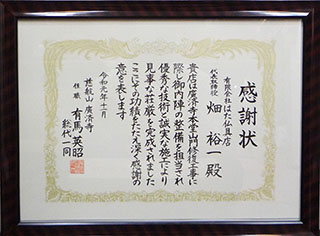 感謝状
有限会社はた仏具店
代表取締役
畑 裕一 殿
貴店は廣済寺本堂山門修復工事に
際し御内陣の整備を担当され
優秀な技術と誠実な施工により
見事な荘厳を完成されました
ここにその功績をたたえ深く感謝の
意を表します
令和元年十一月
慈毅山 廣済寺
住職 有馬英昭
総代一同